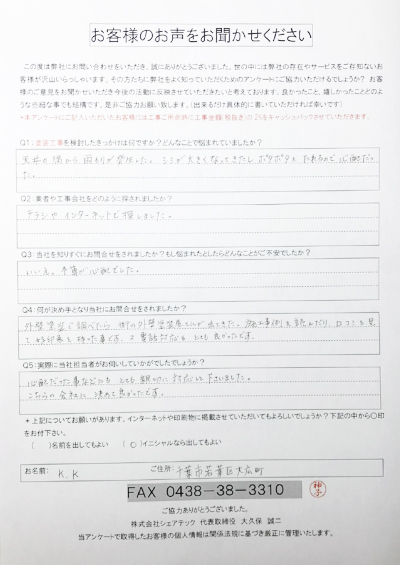 お客様のお声をお聞かせください
この度は弊社にお問い合わせをいただき、誠にありがとうございました。世の中には弊社の存在やサービスをご存知ないお
客様が沢山いらっしゃいます。その方たちに弊社をよく知っていただくためのアンケートにご協力いただけるでしょうか？ お客
様のご意見をお聞かせいただき今後の活動に反映させていただきたいと考えております。良かったこと、嬉しかったことどのよ
うな些細な事でも結構です。是非ご協力お願い致します。（出来るだけ具体的に書いていただければ幸いです）
*本アンケートにご記入いただいたお客様には工事ご用命時に工事金額（税抜き）の2%をキャッシュバックさせていただきます。
Q1：塗装工事を検討したきっかけは何ですか？どんなことで悩まれていましたか？
天井の隅から雨もりが発生した。シミが大きくなってきたし、ポタポタと たれるので心配だっ
た。
Q2：業者や工事会社をどのように探されましたか？
チラシや インターネットで探しました。
Q3：当社を知りすぐにお問合せをされましたか？もし悩まれたとしたらどんなことがご不安でしたか？
いいえ。予算が心配でした。
Q4：何が決め手となり当社にお問合せをされましたか？
外壁塗装で調べたら、街の外壁塗装屋さんが出てきた。施工事例を読んだり、口コミを見
て好印象を持った事です。又電話対応も とても良かったです。
Q5：実際に当社担当者がお伺いしていかがでしたでしょうか？
心配だった事などにも とても親切に対応して下さいました。
こちらの会社に 決めて良かったです。
*上記についてお願いがあります。インターネットや印刷物に掲載させていただいてもよろしいでしょうか？下記の中から〇印
をお付下さい。
（　）名前を出してもよい （〇）イニシャルなら出してもよい
お名前： K.K ご住所： 千葉市若葉区大広町
FAX 0438-38-3310
ご協力ありがとうございました。
株式会社シェアテック 代表取締役 大久保 誠二
当アンケートで取得したお客様の個人情報は関係法規に基づき厳正に管理いたします。